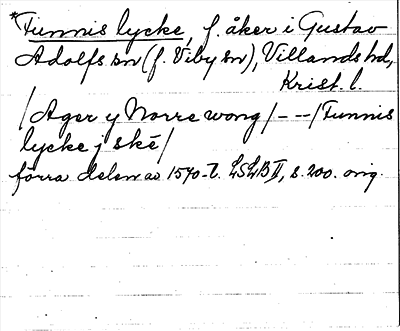 *Tunnis lycke, f. åker i Gustav
Adolfs sn (f. Viby sn), Villands hd,
Krist. l.
/Ager y Norre wong/ - - - /Tunnis
lycke j ske/
förra delen av 1570-t. LSLB II, s. 200. orig.